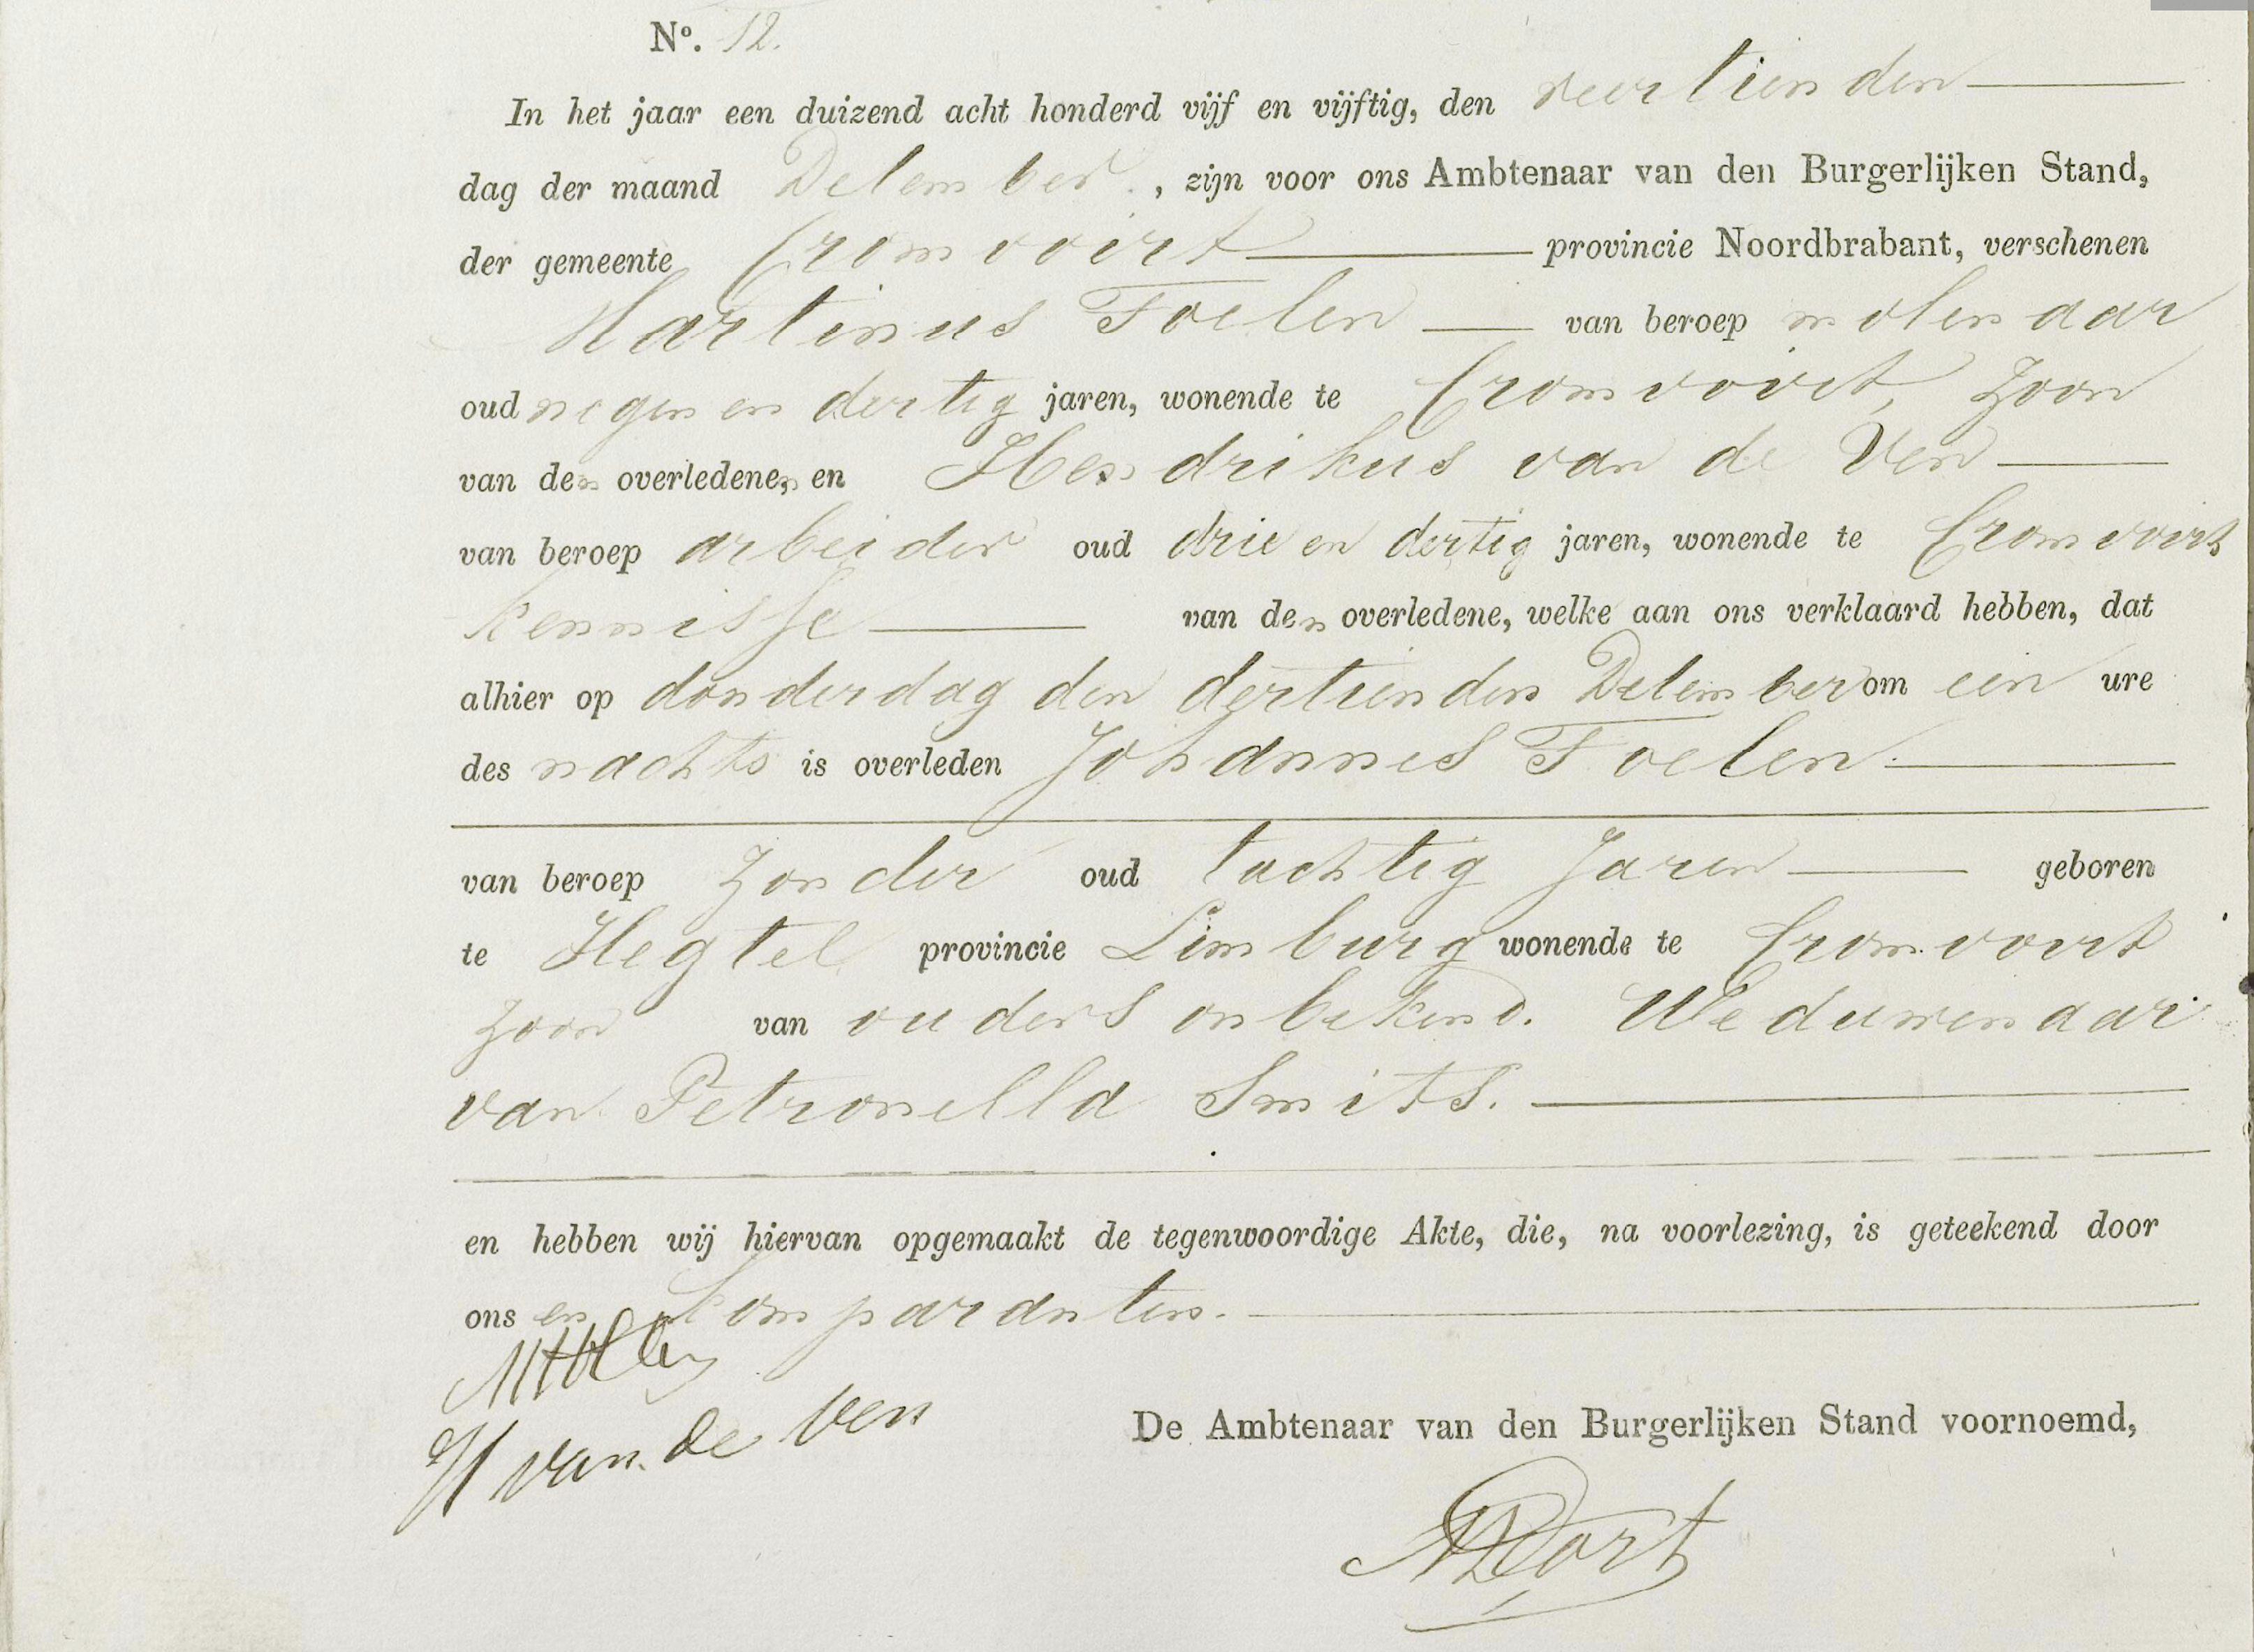 Nº. 12.
In het jaar een duizend acht honderd vijf en vijftig, den veertienden
dag der maand December, zijn voor ons Ambtenaar van den Burgerlijken Stand,
der gemeente Cromvoirt provincie Noordbrabant, verschenen
Martinus Foelen van beroep molenaar
oud negen en dertig jaren, wonende te Cromvoirt, zoon
van den overledene, en Hendrikus van de Ven
van beroep arbeider oud drie en dertig jaren, wonende te Cromvoirt
kennisse van den overledene, welke aan ons verklaard hebben, dat
alhier op donderdag den dertienden December om een ure
des nachts is overleden Johannes Foelen
van beroep zonder oud tachtig Jaren geboren
te Hegtel provincie Limburg wonende te Cromvoirt
zoon van ouders onbekend. Weduwenaar
van Petronella Smits.
en hebben wij hiervan opgemaakt de tegenwoordige Akte, die, na voorlezing, is geteekend door
ons en komparanten.
H van de Ven
De Ambtenaar van den Burgerlijken Stand voornoemd,